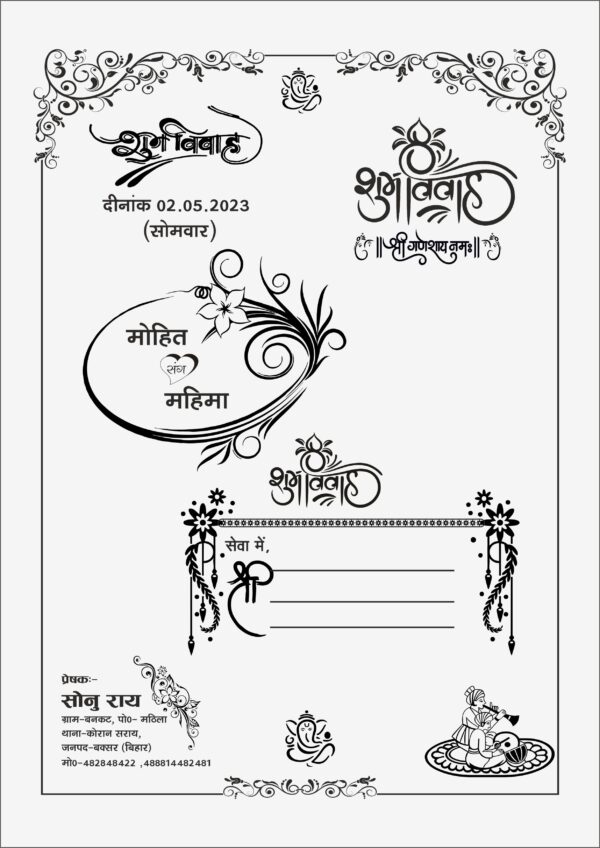 शुभ विवाह
दीनांक 02.05.2023
(सोमवार)
शुभ विवाह
॥ श्री गणेशाय नमः ॥
मोहित
संग
महिमा
शुभ विवाह
सेवा में,
श्री
प्रेषकः-
सोनु राय
ग्राम-बनकट, पो०- मठिला
थाना-कोरान सराय,
जनपद-बक्सर (बिहार)
मो०-482848422 ,488814482481